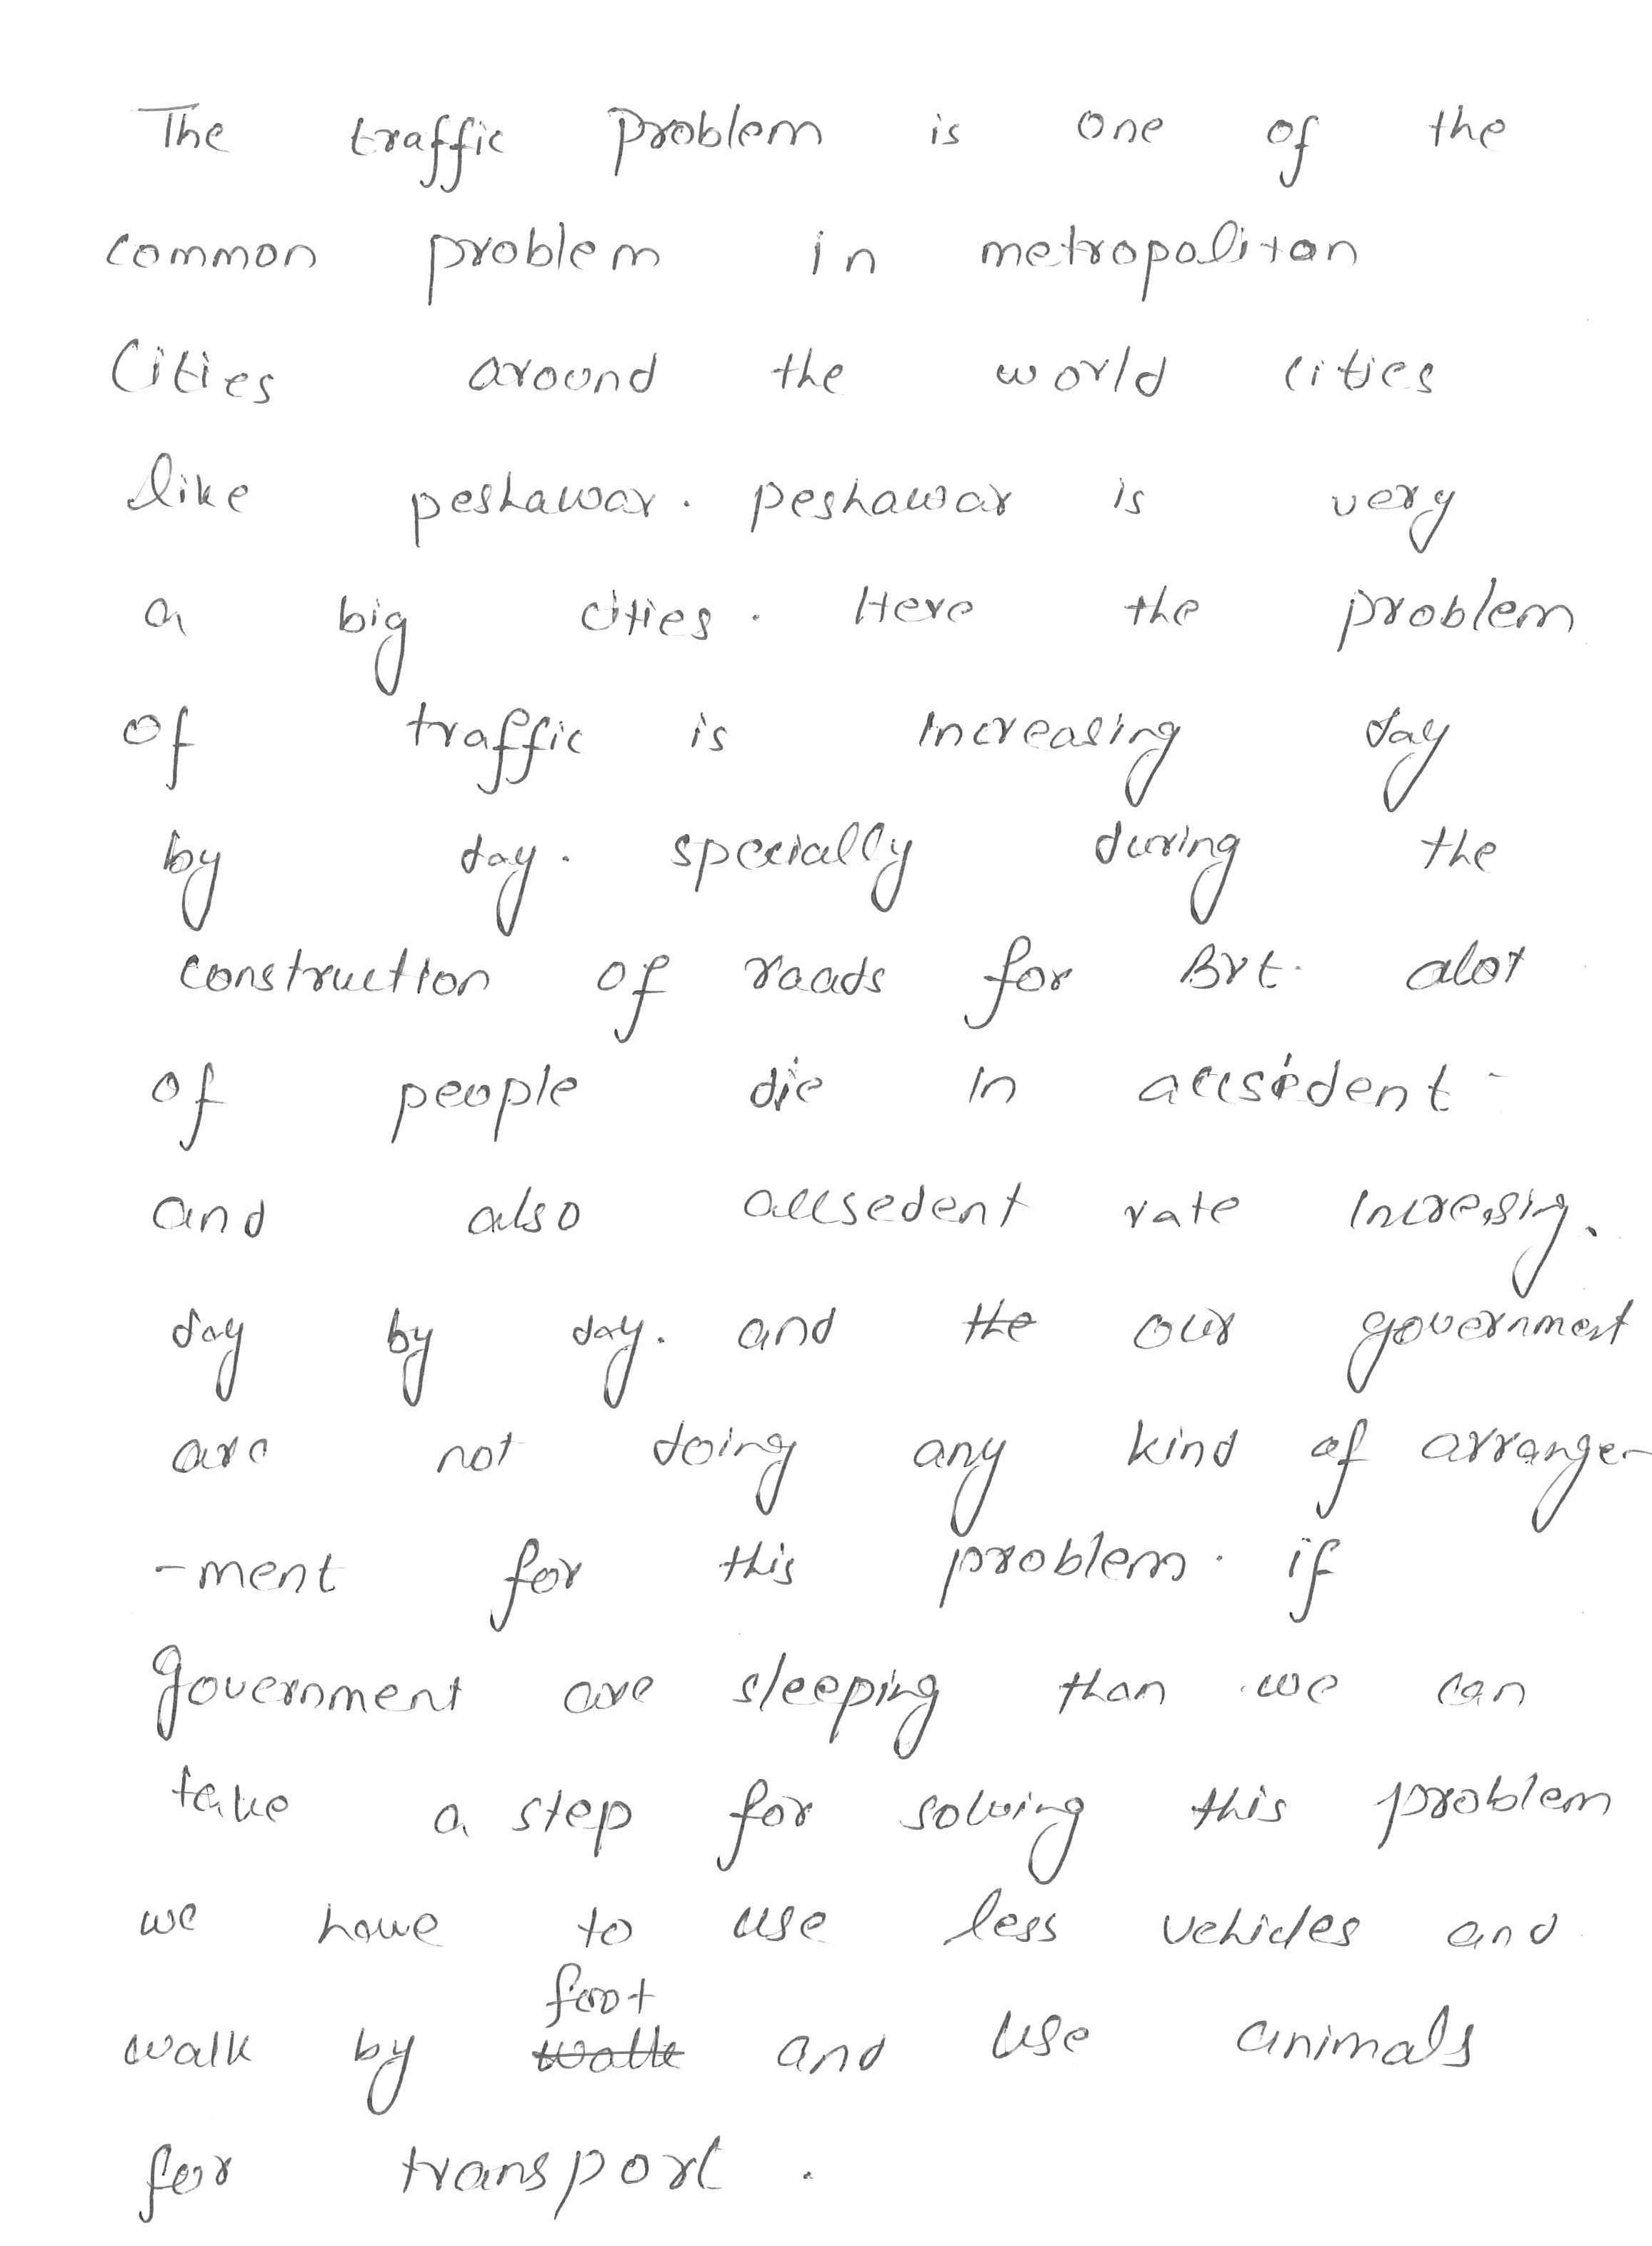 The traffic problem is one of the
common problem in metropolitan
Cities around the world cities
like peshawar. peshawar is very
a big cities. Here the problem
of traffic is increasing day
by day. specially during the
construction of roads for Brt. alot
of people die in accsident-
and also accsedent rate Incresing.
day by day. and the our government
are not doing any kind of arrange-
-ment for this problem. if
government are sleeping than we can
take a step for solving this problem
we have to use less vehicles and
foot
walk by walk and use animals
for transport.